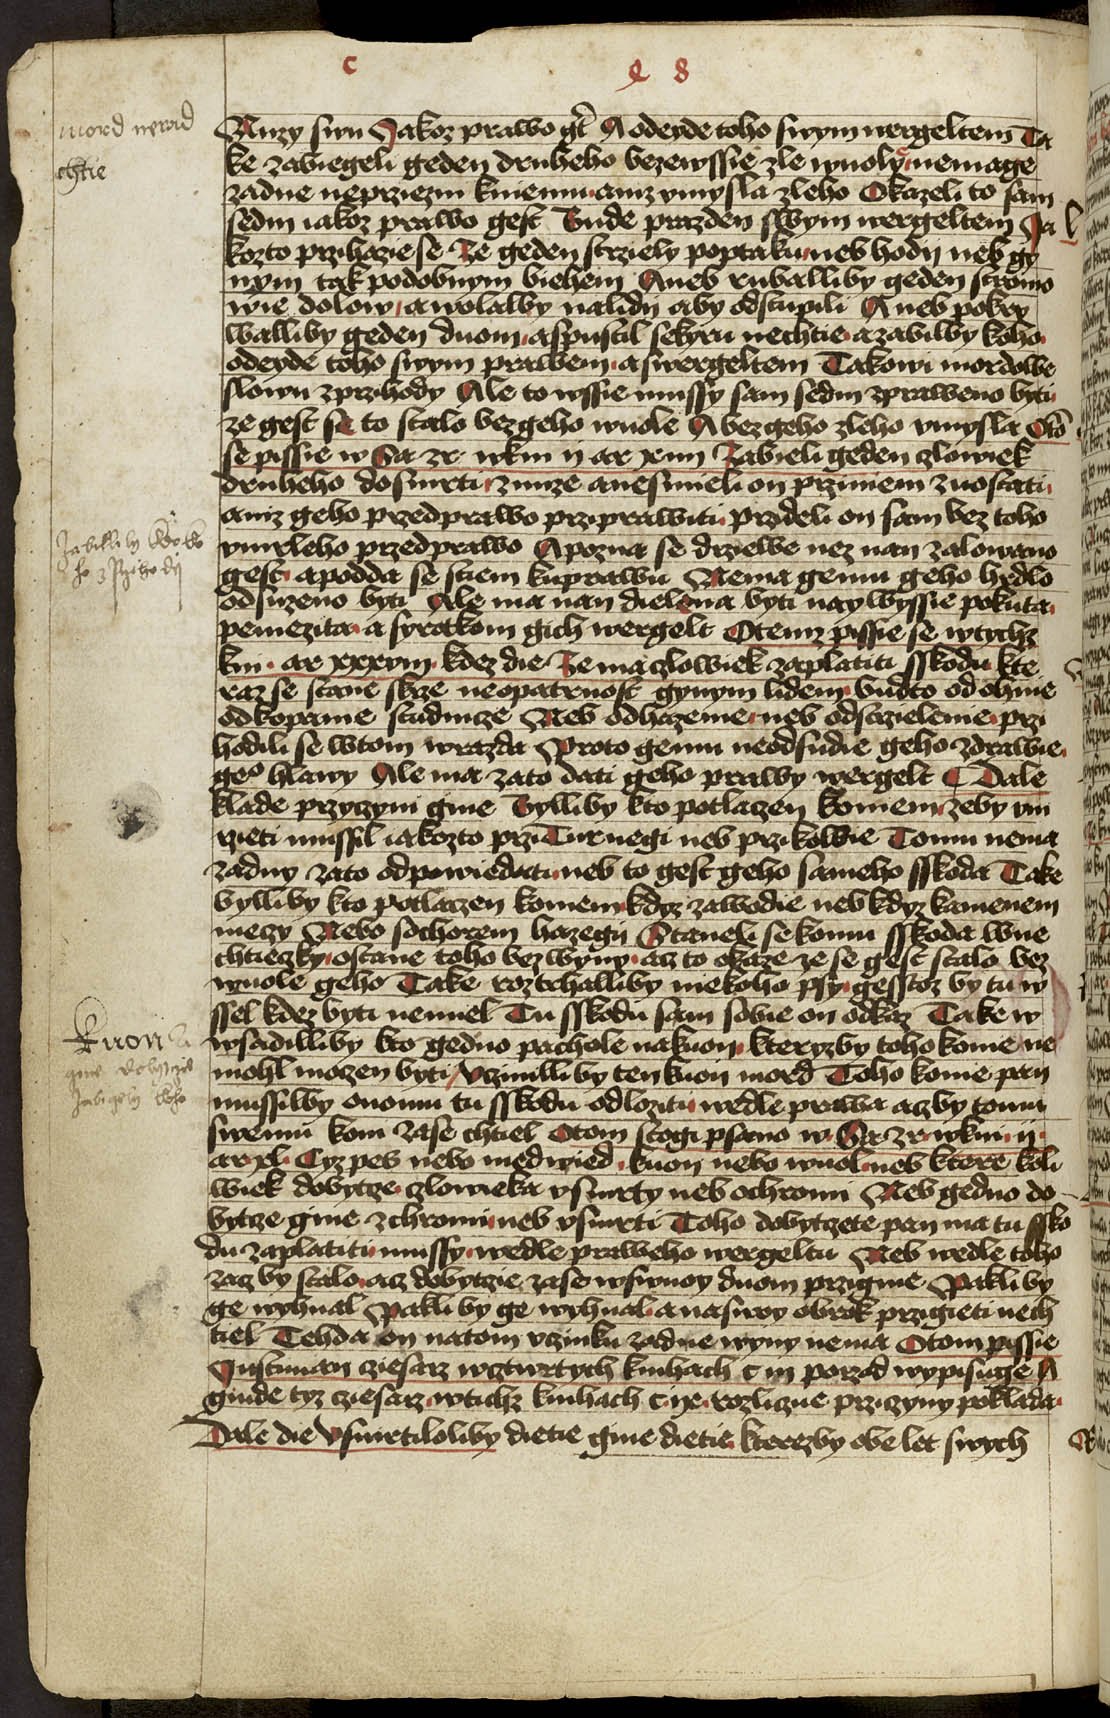 c
Q 8
mord nerad
chtie
Muzy swu Jakoz prawo gt A odeyde toho swym wergeltem Ta
ke zabiegeli geden druheho bezewssie zle wuoly nemage
zadne neprziezni kniemu aniz vmysla zleho Okazeli to sam
sedm iakoz prawo gest Bude prazden swym wergeltem Ja
kozto przihazie se Ze geden strziely po ptaku neb hodij neb gy
nym tak podobnym biehem Aneb ruballiby geden stromo
wie dolow a wolalby nalidij aby odstupili Aneb pokry
walliby geden duom a spustil sekyru nechtie a zabilby koho
odeyde toho swym prawem a swergeltem Takowi mordowe
slowu zprzihody Ale to wssie mussy sam sedm zpraweno byti
ze gest se to stalo bez geho wuole A bez geho zleho vmysla Oto
se pissie w Sa zr wkm ij ar xiiij Zabieli geden czlowiek
druheho do smrti z nuze a nesmieli on przi niem zuostati
aniz geho przed prawo przi prawiti przideli on sam bez toho
vmrleho przed prawo A pozna se drziewe nez nan zalowano
gest a podda se stiem ku prawu Nema gemu geho hrdlo
odsuzeno byti Ale ma nan dielena byti naywyssie pokuta
peniezita a syrotkom gich wergelt O temz pissie se w tychz
kni ar xxxviij kdez die Ze ma czlowiek zaplatiti sskodu kte
raz se stane skrze neopatrnost gynym lidem budto od ohnie
od kopanie studnicze Neb od hazenie neb od strzielenie przi
hodili se w tom wrazda Proto gemu neodsudie geho zdrawie
geo hlawy Ale ma za to dati geho prawy wergelt Dale
klade przyczyni gine Bylliby kto potlaczen koniem zeby vm
rzieti mussil iakozto przi Turnegi neb przi kolbie Tomu nema
zadny za to odpowiedati neb to gest geho sameho sskoda Take
bylliby kto potlaczen koniem kdyz zawodie neb kdyz kamenem
mecy Nebo sochorem hazegij Staneli se komu sskoda w nie
chtiezky ostane toho bez wyny acz to okaze ze se gest stalo bez
wuole geho Take roztrhalliby niekoho psy gesstoz by tu w
ssel kdez byti nemiel Tu sskodu sam sobie on odkaz Take w
wsadilliby kto gedno pachole na kuon kteryzby toho konie ne
mohl moczen byti Vczinilliby ten kuon mord Toho konie pan
mussilby onomu tu sskodu odloziti wedle prawa aczby tomu
swemu koni zase chtiel O tom stogi psano w Sa zr wkni ij
ar xl Czyz pes nebo nedwied kuon nebo wuol neb ktere koli
wiek dobytcze czlowieka vsmrty neb ochromi Neb gedno do
bytcze gine zchromi neb vsmrti Toho dobytczete pan ma tu ssko
du zaplatiti mussy wedle praweho wergeltu Neb wedle toho
zacz by stalo acz dobytczie zase w swuoy duom przigme Pakliby
ge wyhnal Pakliby ge wyhnal a na swoy obrok przigieti nech
tiel Tehda on na tom vczinku zadne wyny nema O tom pissie
Justinian cziesarz w cztwrtych knihach c iij porzad wypisuge A
ginde tyz cziesarz w tichz knihach c ix rozliczne przicziny poklada
Dale die Vsmrtiloliby dietie gine dietie kterezby obe let swych
Zabillby kdo ko
ho z Przihody
Kuon
gine dobytcze
Zabigeli koho